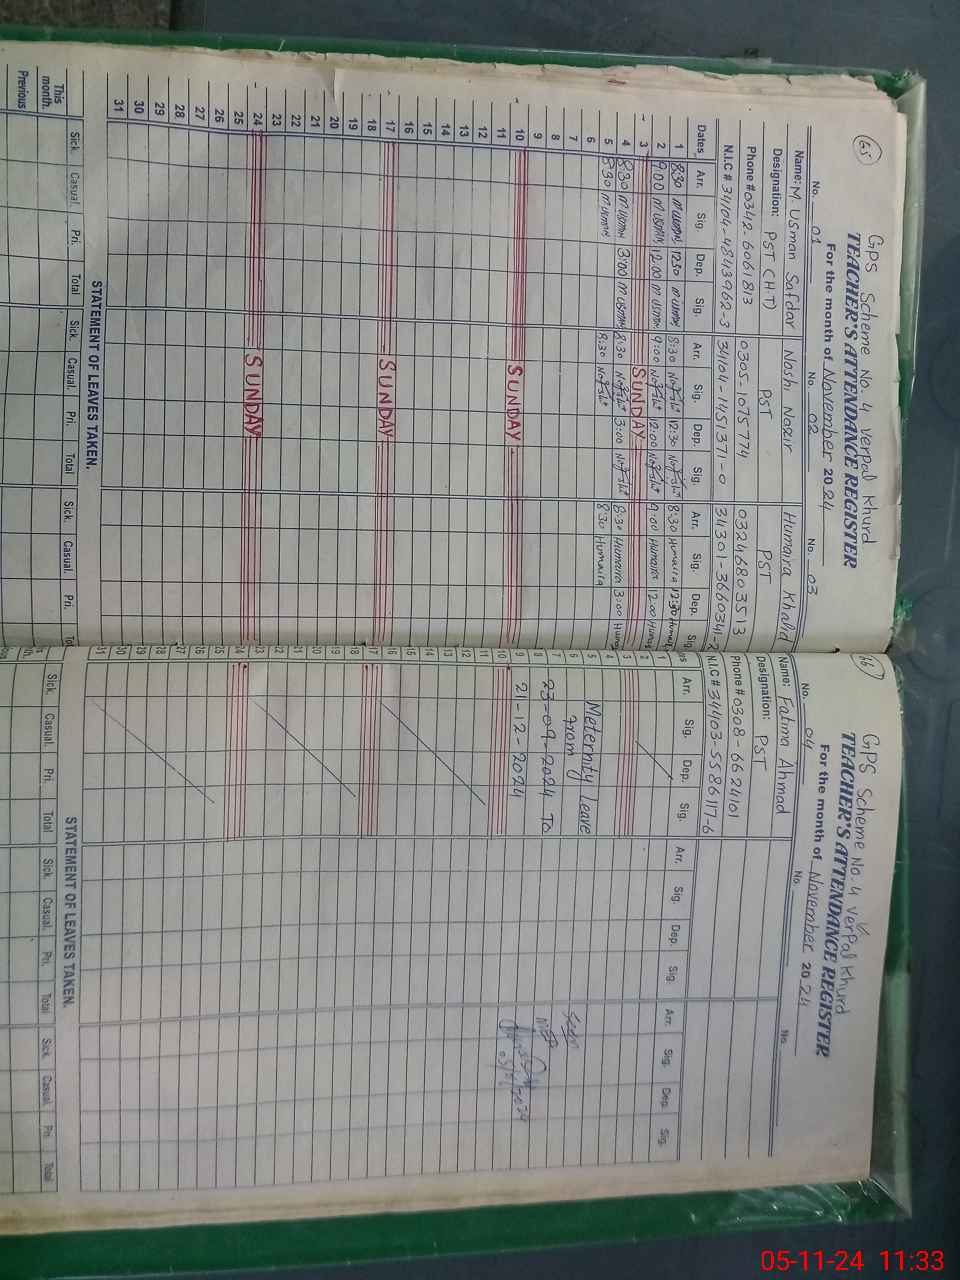 65
GPS Scheme No. 4 verpal Khurd
TEACHER'S ATTENDANCE REGISTER
For the month of November 2024
No. 01 No. 02 No. 03
Name: M. Usman Safdar Noshi Nazir Humaira Khalid
Designation: PST (H.T) PST PST
Phone # 0342-6061813 0305-1075774 03246803513
N.I.C # 34104-4843962-3 34104-1451371-0 34301-3660341-2
Dates Arr. Sig. Dep. Sig. Arr. Sig. Dep. Sig. Arr. Sig. Dep. Sig
1 8:30 M USMAN 12:30 M USMAN 8:30 Noshi 12:30 Noshi 8:30 Humaira 12:30 Humai
2 9:00 M USMAN 12:00 M USMAN 9:00 Noshi 12:00 Noshi 9:00 Humaira 12:00 Humai
3 SUNDAY
4 8:30 M USMAN 3:00 M USMAN 8:30 Noshi 3:00 Noshi 8:30 Humaira 3:00 Huma
5 8:30 M USMAN 8:30 Noshi 8:30 Humaira
6
7
8
9
10 SUNDAY
11
12
13
14
15
16
17 SUNDAY
18
19
20
21
22
23
24 SUNDAY
25
26
27
28
29
30
31
STATEMENT OF LEAVES TAKEN.
Sick. Casual. Pri. Total Sick. Casual. Pri. Total Sick. Casual. Pri. To
This month.
Previous
66
GPS Scheme No. 4 verpal Khurd
TEACHER'S ATTENDANCE REGISTER
For the month of November 2024
No. 04 No. No.
Name: Fatima Ahmad
Designation: PST
Phone # 0308-6624101
N.I.C # 34403-5586117-6
es Arr. Sig. Dep. Sig. Arr. Sig. Dep. Sig. Arr. Sig. Dep. Sig.
1
2
3
4
5 Meternity Leave
6 from
7 23-09-2024 To
8
9 21-12-2024
10
11
12
13
14
15
16
17
18
19
20
21
22
23
24
25
26
27
28
29
30
31
Seen
STATEMENT OF LEAVES TAKEN.
Sick. Casual. Pri. Total Sick. Casual. Pri. Total Sick. Casual. Pri. Total
05-11-24 11:33